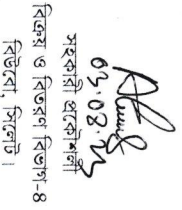 ০১.০৪.২১
সহকারি প্রকৌশলী
বিক্রয় ও বিতরণ বিভাগ-৪
বিউবো, সিলেট।